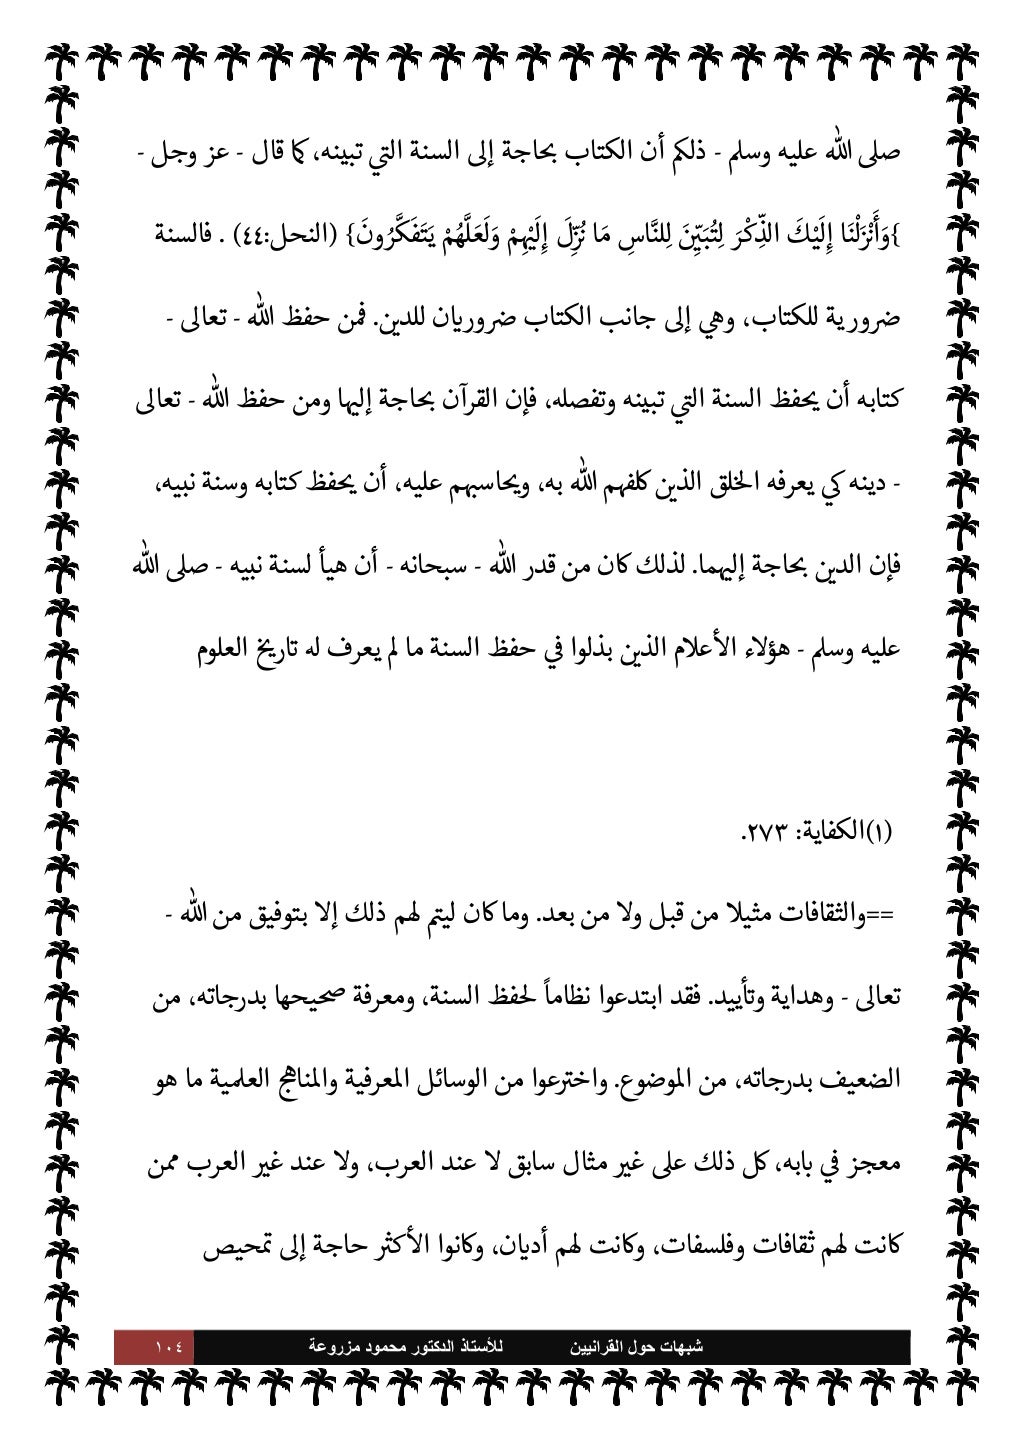 صلى الله عليه وسلم - ذلكم أن الكتاب بحاجة إلى السنة التي تبينه، كما قال - عز وجل -
}وَأَنْزَلْنَا إِلَيْكَ الذِّكْرَ لِتُبَيِّنَ لِلنَّاسِ مَا نُزِّلَ إِلَيْهِمْ وَلَعَلَّهُمْ يَتَفَكَّرُونَ{ (النحل:٤٤) . فالسنة
ضرورية للكتاب، وهي إلى جانب الكتاب ضروريان للدين. فمن حفظ الله - تعالى -
كتابه أن يحفظ السنة التي تبينه وتفصله، فإن القرآن بحاجة إليها ومن حفظ الله - تعالى
- دينه كي يعرفه الخلق الذين كلفهم الله به، ويحاسبهم عليه، أن يحفظ كتابه وسنة نبيه،
فإن الدين بحاجة إليهما. لذلك كان من قدر الله - سبحانه - أن هيأ لسنة نبيه - صلى الله
عليه وسلم - هؤلاء الأعلام الذين بذلوا في حفظ السنة ما لم يعرف له تاريخ العلوم
(١)الكفاية: ٢٧٣.
==والثقافات مثيلا من قبل ولا من بعد. وما كان ليتم لهم ذلك إلا بتوفيق من الله -
تعالى - وهداية وتأييد. فقد ابتدعوا نظاماً لحفظ السنة، ومعرفة صحيحها بدرجاته، من
الضعيف بدرجاته، من الموضوع. واخترعوا من الوسائل المعرفية والمناهج العلمية ما هو
معجز في بابه، كل ذلك على غير مثال سابق لا عند العرب، ولا عند غير العرب ممن
كانت لهم ثقافات وفلسفات، وكانت لهم أديان، وكانوا الأكثر حاجة إلى تمحيص
شبهات حول القرانيين للأستاذ الدكتور محمود مزروعة ١٠٤